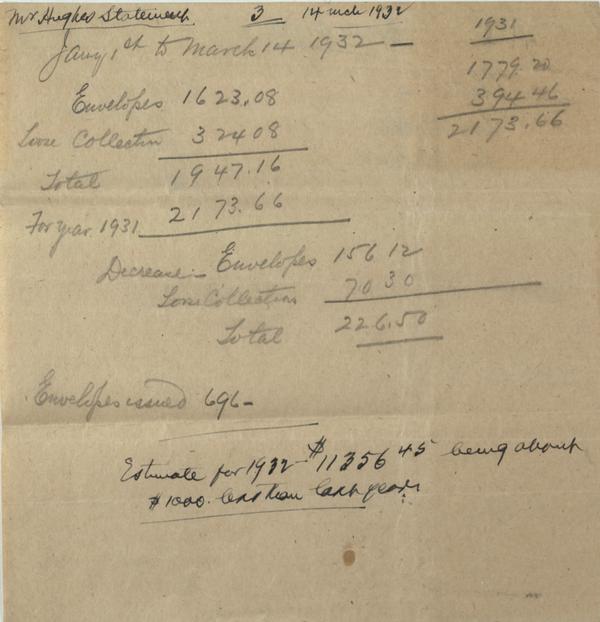 Mr Hughes Statement. 3 14 Mch 1932
Jany 1st to March 14 1932 —
1931
1779.20
394.46
2173.66
Envelopes 1623.08
Loose Collection 324 08
Total 1947.16
For year 1931 2173.66
Decrease – Envelopes 156 12
Loose Collections 70 30
Total 226.50
Envelopes issued 696 –
Estimate for 1932 – $11356 45 being about
$1000. less than last year.